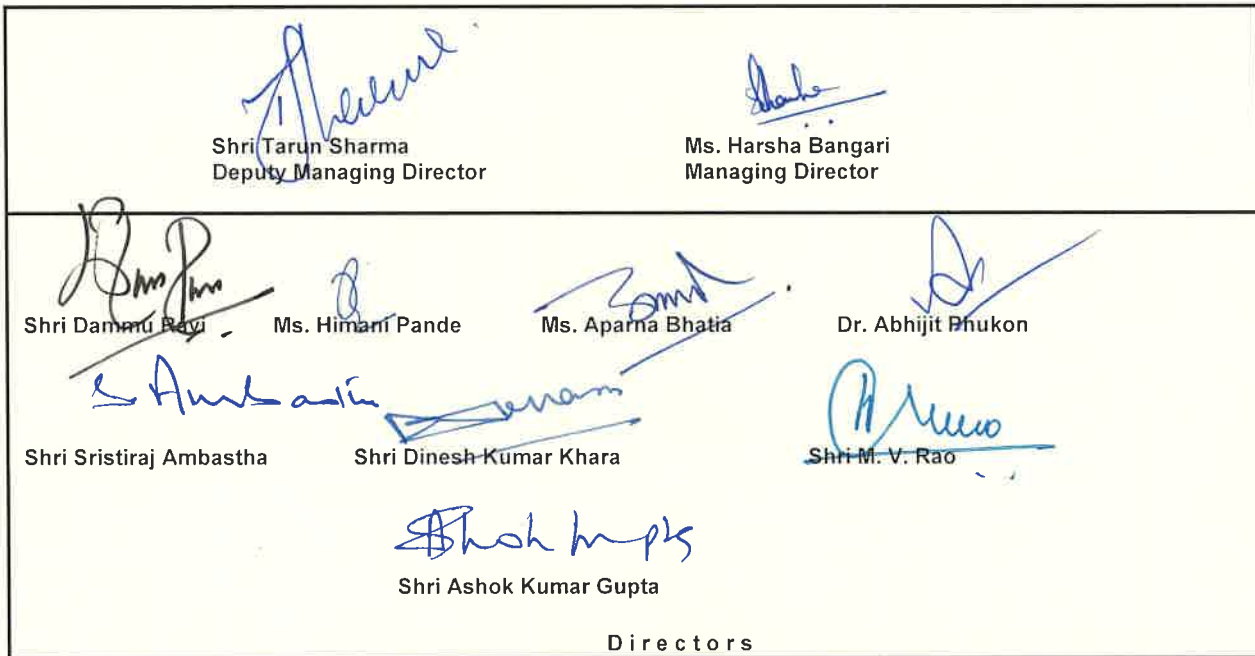 Shri Tarun Sharma
Deputy Managing Director
Ms. Harsha Bangari
Managing Director
Shri Dammu Ravi
Ms. Himani Pande
Ms. Aparna Bhatia
Dr. Abhijit Phukon
S Ambastha
Shri Sristiraj Ambastha
Shri Dinesh Kumar Khara
Shri M. V. Rao
Ashok Gupta
Shri Ashok Kumar Gupta
Directors